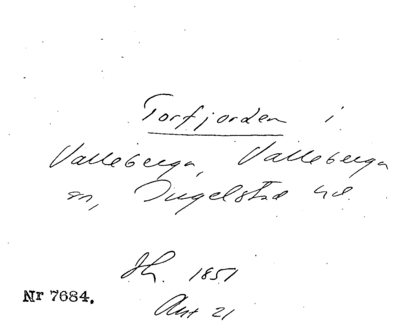 Torfjorden i
Valleberga, Valleberga
sn, Ingelstad hd
Jh. 1851
Akt 21
Nr 7684.